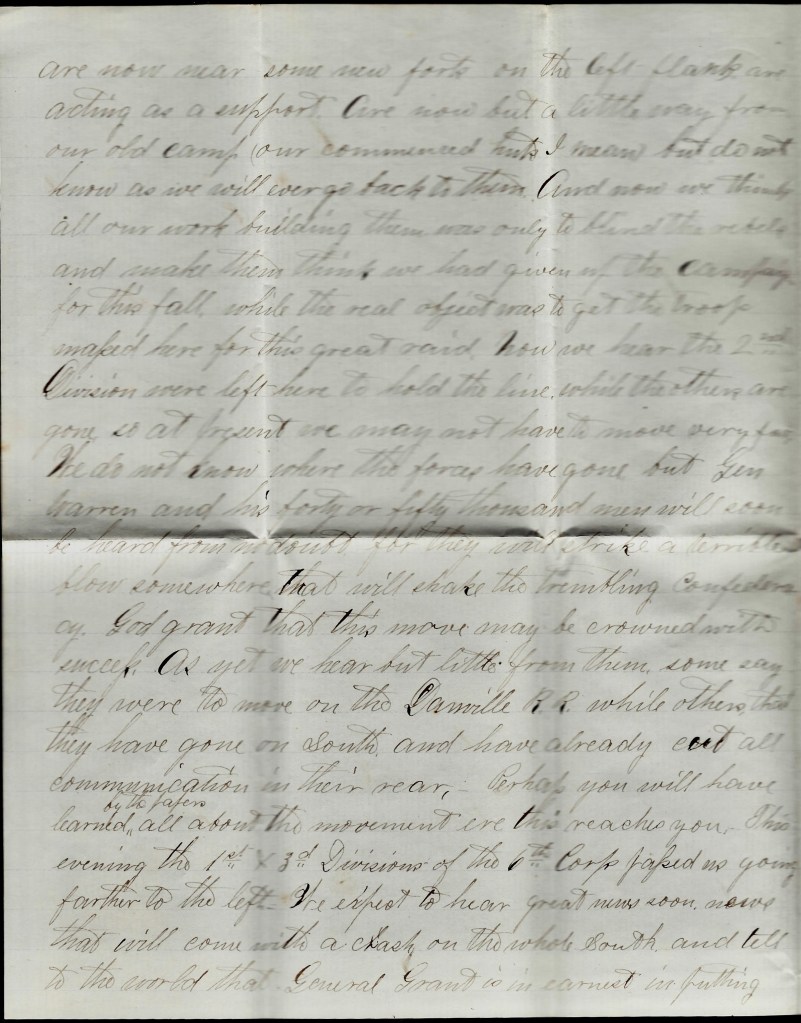 are now near some new forts on the left flank are
acting as a support. Are now but a little way from
our old camp (our commenced huts I mean but do not
know as we will ever go back to them. And now we think
all our work building them was only to blind the rebels
and make them think we had given up the campaig
for this fall, while the real object was to get the troop
massed here for this great raid. Now we hear the 2nd
Division were left here to hold the line, while the others are
gone, so at present we may not have to move very far
We do not know where the forces have gone but Gen
Warren and his forty or fifty thousand men will soon
be heard from no doubt, for they will strike a terrible
blow somewhere that will shake the trembling Confedera
cy. God grant that this move may be crowned with
success. As yet we hear but little from them, some say
they were to move on the Danville R.R. while others that
they have gone on South, and have already cut all
communication in their rear, - Perhaps you will have
by the papers
learned all about the movement ere this reaches you. - This
evening the 1st & 3d Divisions of the 6th Corps passed us going
farther to the left - We expect to hear great news soon. news
that will come with a clash, on the whole South, and tell
to the world that General Grant is in earnest in putting